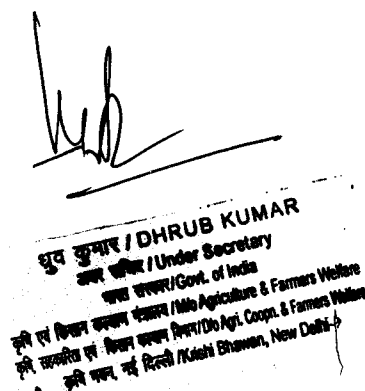 ध्रुव कुमार / DHRUB KUMAR
अवर सचिव / Under Secretary
भारत सरकार/Govt. of India
कृषि एवं किसान कल्याण मंत्रालय / M/o Agriculture & Farmers Welfare
कृषि, सहकारिता एवं किसान कल्याण विभाग/D/o Agri. Coopn. & Farmers Welfare
कृषि भवन, नई दिल्ली /Krishi Bhawan, New Delhi-